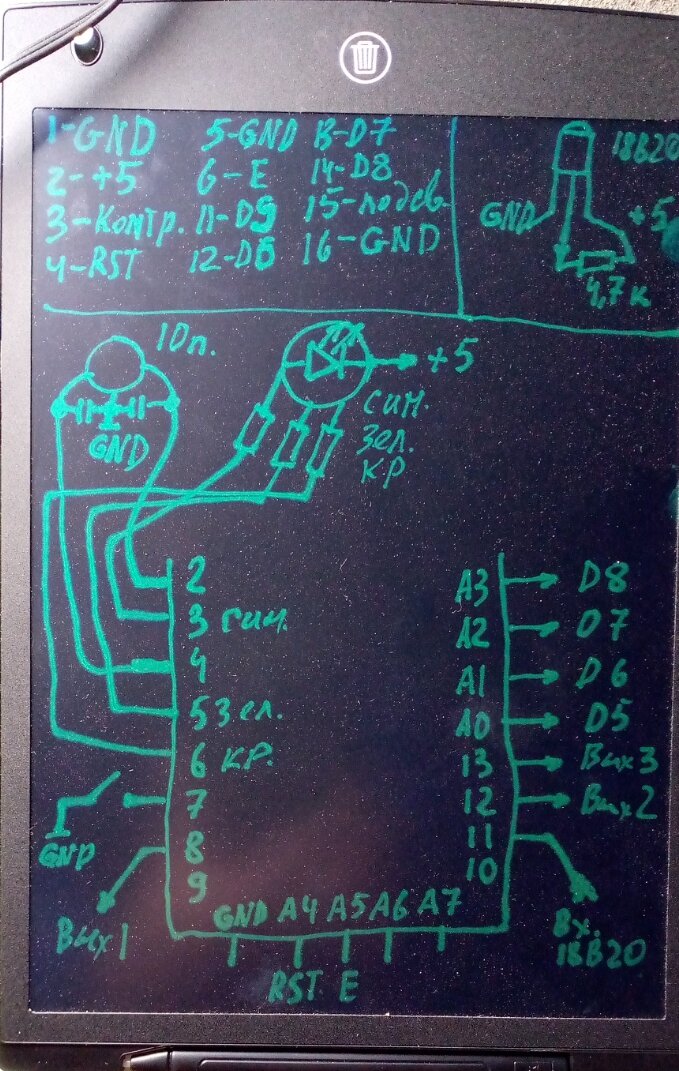 1-GND 5-GND 13-D7
2-+5 6-E 14-D8
3-Контр. 11-D5 15-подсв.
4-RST 12-D6 16-GND
18B20
GND +5
4,7к
10п.
GND
+5
сим.
зел.
кр
2 A3 D8
3 сим. A2 D7
4 A1 D6
5 зел. A0 D5
6 кр. 13 Вых3
7 12 Вых2
GND
8 11
9 10
GND A4 A5 A6 A7
Вых1
RST E
Вх.
18B20